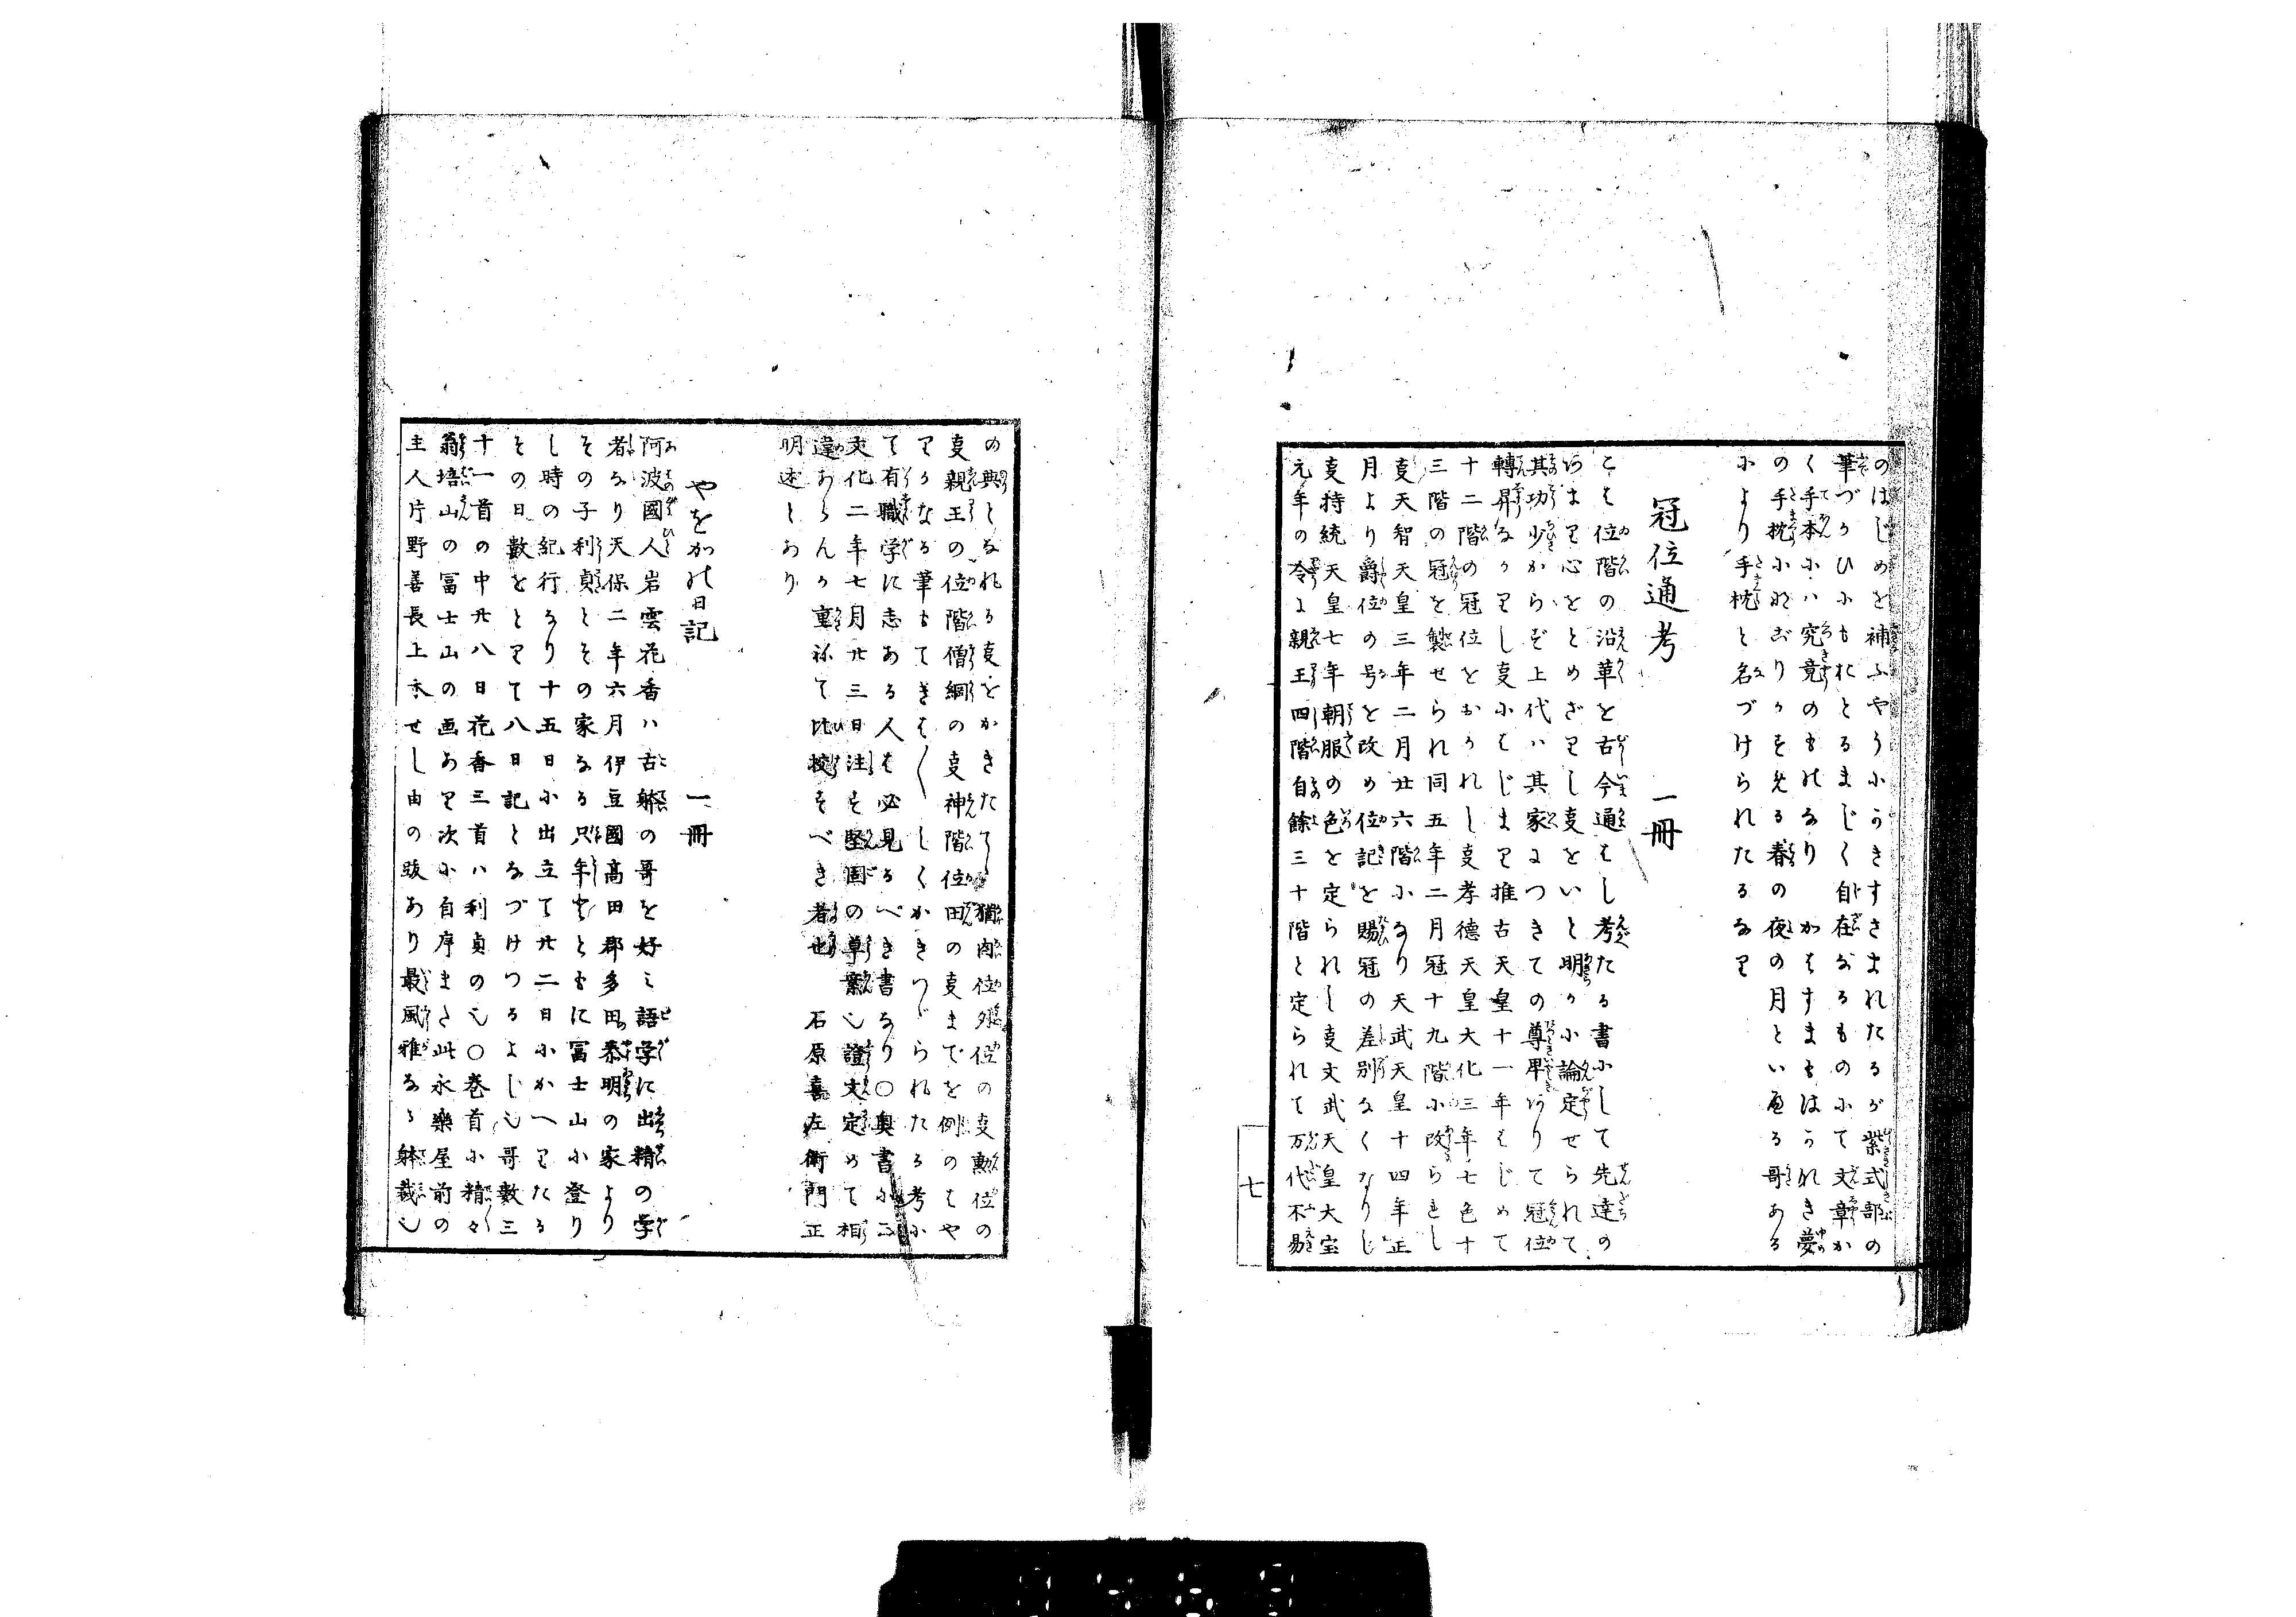 のはじめを補ふやうにかきすさまれたるが紫式部の
筆づかひにもにとるまじく自在なるものにて文章か
く手本にハ究竟のものなりかはすまもはかれき夢
の手枕にねぶりかをえる春の夜の月といへる哥ある
により手枕と名づけられたるなり
冠位通考　一冊
こは位階の沿革を古今通はし考たる書にして先達の
いまだ心をとめざりし事をいと明かに論定せられて
其功少からず上代ハ其家につきての尊卑ありて冠位
轉昇なかりし事にはじまり推古天皇十一年はじめて
十二階の冠位をおかれし事孝徳天皇大化三年七色十
三階の冠を製せられ同五年二月冠十九階に改らえし
事天智天皇三年二月廿六階になり天武天皇十四年正
月より爵位の号を改め位記を賜冠の差別なくなりし
事持統天皇七年朝服の色を定られし事文武天皇大宝
元年の令に親王四階自餘三十階と定られて万代不易
七
の典となれる事をかきたてし猶内位外位の事勲位の
事親王の位階僧綱の事神階位田の事までを例のはや
りかなる筆もてきは〳〵しくかきつゞられたる考に
て有職学に志ある人は必見るべき書なり○奥書に云
文化二年七月廿三日注を堅固の草藁也證文定めて相
違あらんか重ねて比挍をべき者也　石原喜左衛門正
明述とあり
やをかの日記　一冊
阿波國人岩雲花香ハ古躰の哥を好み語学に出精の学
者なり天保二年六月伊豆國高田郡多田泰明の家より
その子利貞とその家なる只年もとともに冨士山に登り
し時の紀行なり十五日に出立て廿二日にかへりたる
その日數をとりて八日記となづけつるよし也哥數三
十一首の中廿八日花香三首ハ利貞の也○巻首に精々
翁培山の冨士山の画あり次に自序また此永樂屋前の
主人片野善長上木せし由の跋あり最風雅なる躰裁也